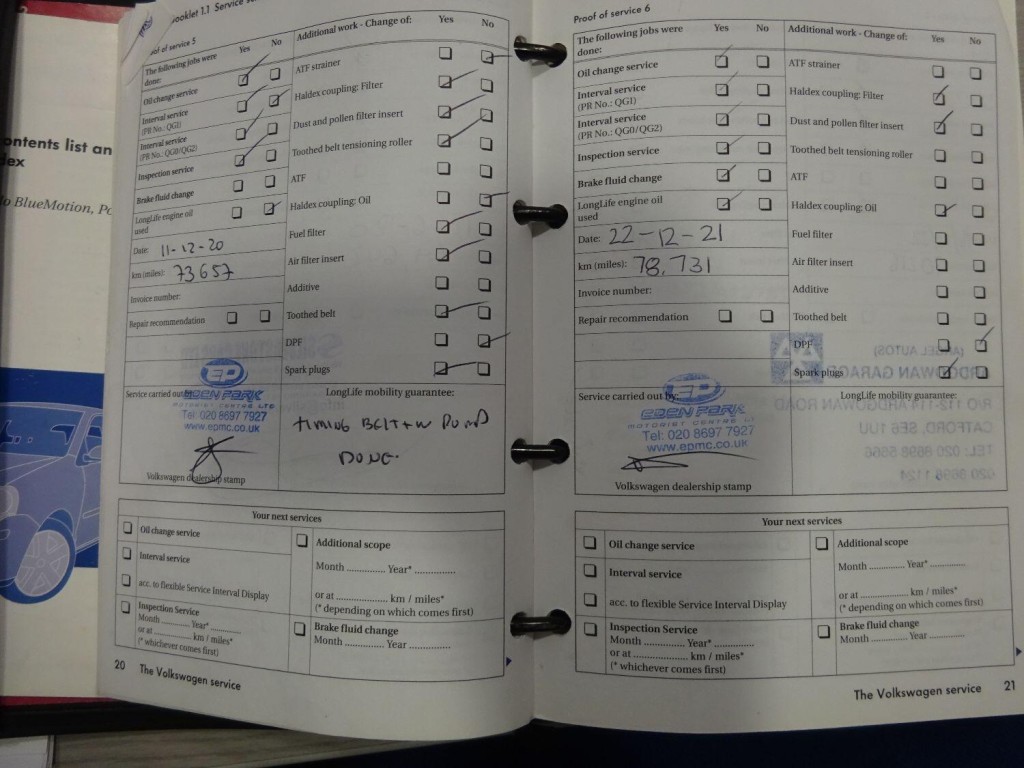 ooklet 1.1 Service
of of service 5
The following jobs were done:
Yes
No
Additional work - Change of:
Yes
No
Oil change service
Interval service
(PR No.: QG1)
Interval service
(PR No.: QG0/QG2)
Inspection service
Brake fluid change
LongLife engine oil
used
Date: 11-12-20
km (miles): 73657
Invoice number:
Repair recommendation
ATF strainer
Haldex coupling: Filter
Dust and pollen filter insert
Toothed belt tensioning roller
ATF
Haldex coupling: Oil
Fuel filter
Air filter insert
Additive
Toothed belt
DPF
Spark plugs
Service carried out by:
EP
EDEN PARK
MOTORIST CENTRE LTD
Tel: 020 8697 7927
www.epmc.co.uk
Volkswagen dealership stamp
LongLife mobility guarantee:
TIMING BELT + W PUMP
DONE.
Your next services
Oil change service
Interval service
acc. to flexible Service Interval Display
Inspection Service
Month ............ Year* ............
or at ............ km / miles*
(* whichever comes first)
Additional scope
Month ............ Year* ............
or at ............ km / miles*
(* depending on which comes first)
Brake fluid change
Month ............ Year ............
20 The Volkswagen service
Proof of service 6
The following jobs were
done:
Yes
No
Additional work - Change of:
Yes
No
Oil change service
Interval service
(PR No.: QG1)
Interval service
(PR No.: QG0/QG2)
Inspection service
Brake fluid change
LongLife engine oil
used
Date: 22-12-21
km (miles): 78,731
Invoice number:
Repair recommendation
ATF strainer
Haldex coupling: Filter
Dust and pollen filter insert
Toothed belt tensioning roller
ATF
Haldex coupling: Oil
Fuel filter
Air filter insert
Additive
Toothed belt
DPF
Spark plugs
Service carried out by:
EP
EDEN PARK
MOTORIST CENTRE LTD
Tel: 020 8697 7927
www.epmc.co.uk
Volkswagen dealership stamp
LongLife mobility guarantee:
Your next services
Oil change service
Interval service
acc. to flexible Service Interval Display
Inspection Service
Month ............ Year* ............
or at ............ km / miles*
(* whichever comes first)
Additional scope
Month ............ Year* ............
or at ............ km / miles*
(* depending on which comes first)
Brake fluid change
Month ............ Year ............
The Volkswagen service 21
ontents list an
dex
lo BlueMotion, Po